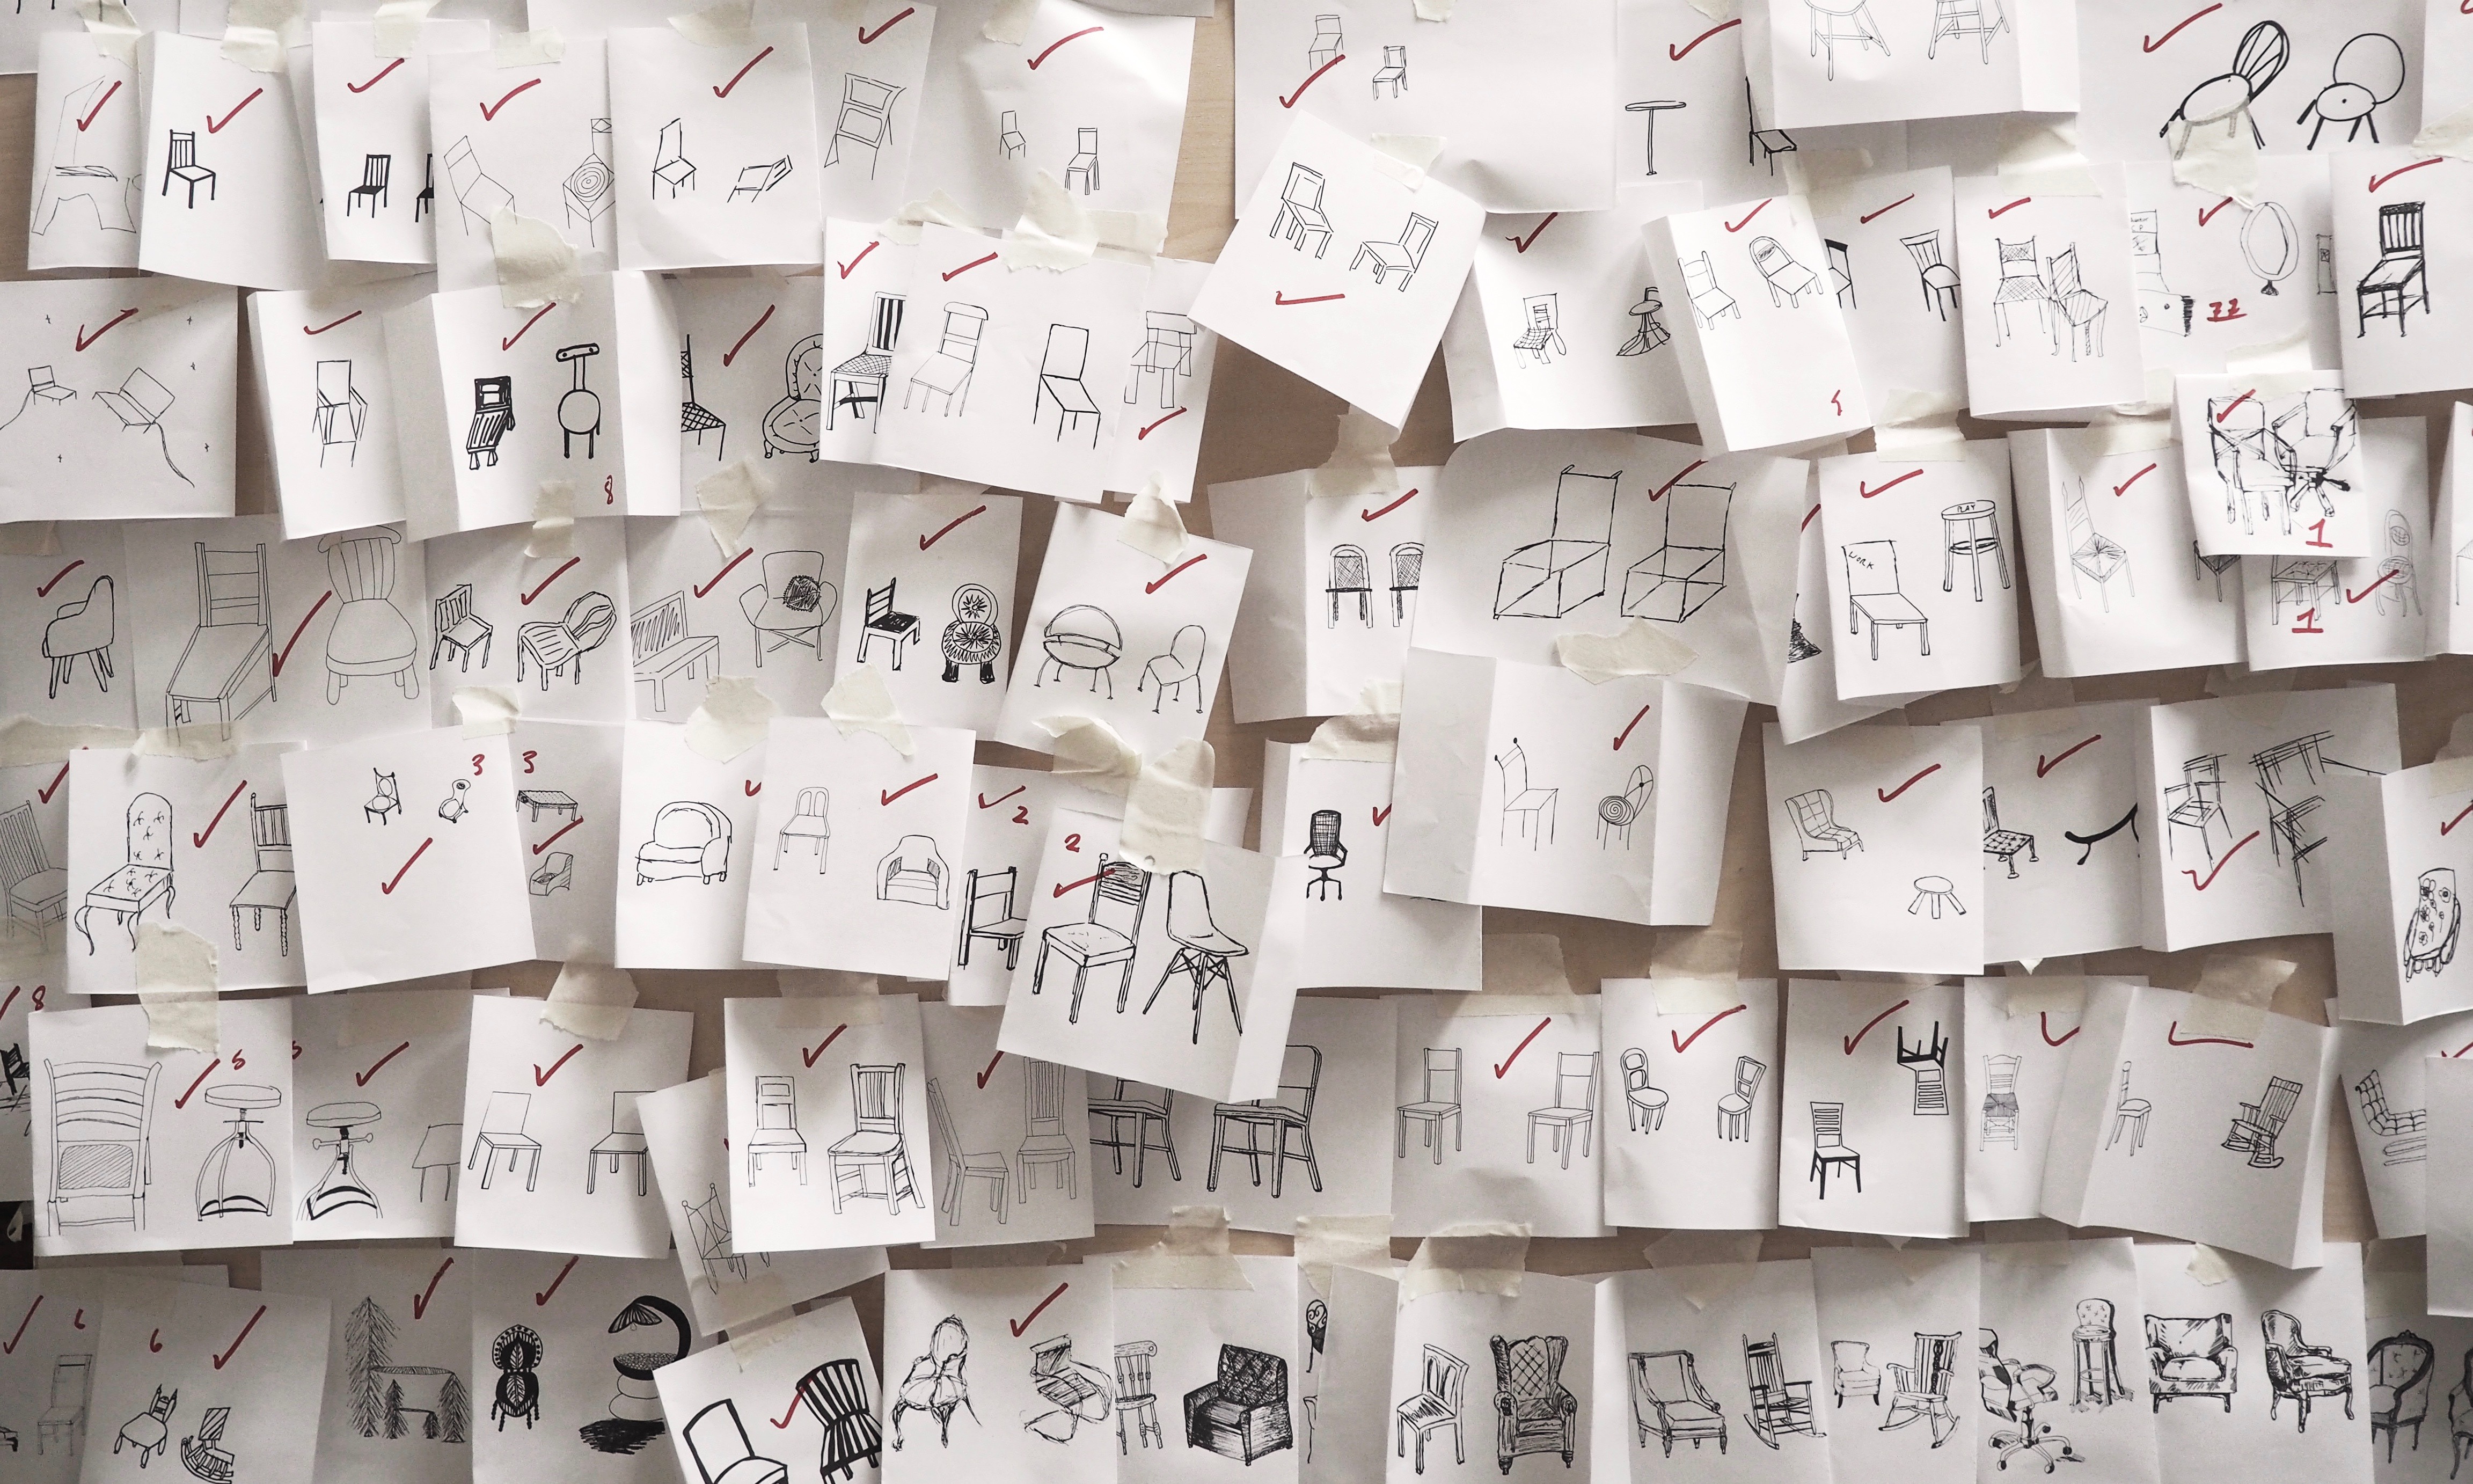 22
9
8
PLAY
WORK
1
1
3
3
2
2
8
5
5
6
6